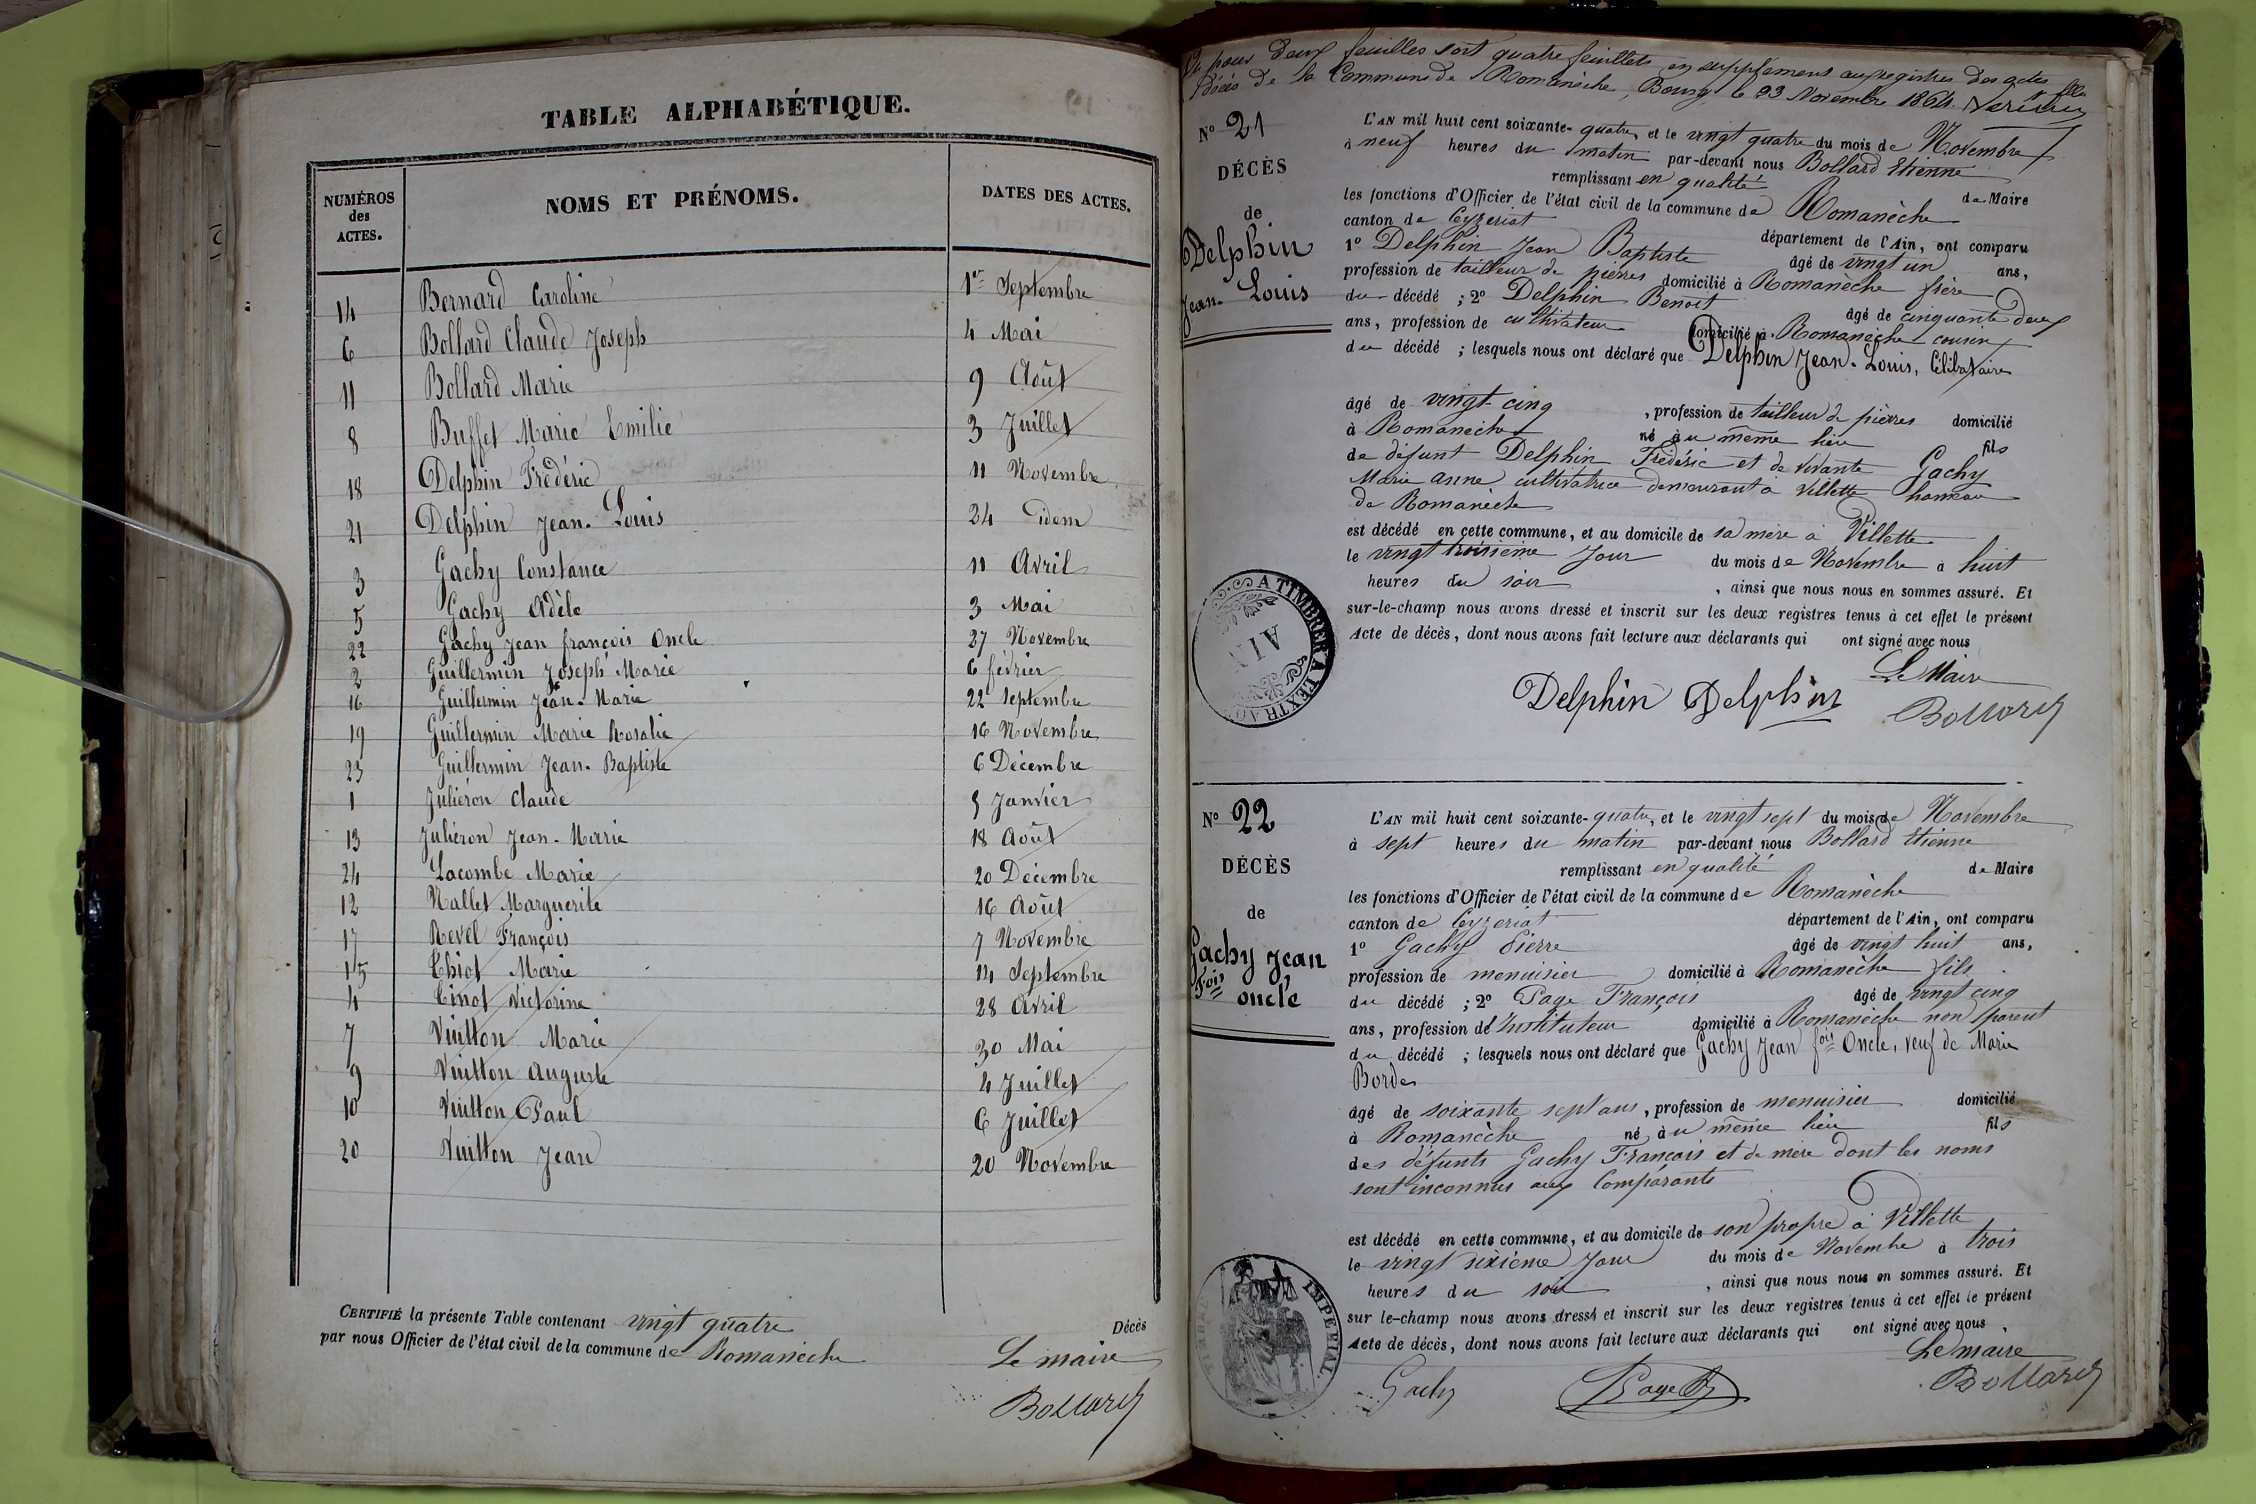 TABLE ALPHABÉTIQUE.
NUMÉROS des ACTES. NOMS ET PRÉNOMS. DATES DES ACTES.
14 Bernard Caroline 1er Septembre
6 Bollard Claude Joseph 4 Mai
11 Bollard Marie 9 Août
8 Buffet Marie Emilie 3 Juillet
18 Delphin Frédéric 11 Novembre
21 Delphin Jean-Louis 24 idem
3 Gachy Constance 11 Avril
5 Gachy Adèle 3 Mai
22 Gachy Jean françois Oncle 27 Novembre
2 Guillermin Joseph Marie 6 février
16 Guillermin Jean-Marie 22 Septembre
19 Guillermin Marie Rosalie 16 Novembre
23 Guillermin Jean-Baptiste 6 Décembre
1 Juliéron Claude 5 Janvier
13 Juliéron Jean-Marie 18 Août
24 Lacombe Marie 20 Décembre
12 Nallet Marguerite 16 Août
17 Revel François 7 Novembre
15 Chiot Marie 14 Septembre
4 Cinot Victorine 28 Avril
7 Vuitton Marie 30 Mai
9 Vuitton Auguste 4 Juillet
10 Vuitton Paul 6 Juillet
20 Vuitton Jean 20 Novembre
CERTIFIÉ la présente Table contenant vingt quatre Décès
par nous Officier de l'état civil de la commune de Romanèche
Le maire
Bollard
Vu pour deux feuilles soit quatre feuillets en supplément aux registres des actes
décès de la Commune de Romanèche, Bourg le 23 Novembre 1864.
N° 21
DÉCÈS
de
Delphin
Jean-Louis
L'AN mil huit cent soixante-quatre, et le vingt quatre du mois de Novembre
à neuf heures du matin par-devant nous Bollard Etienne
remplissant en qualité de Maire
les fonctions d'Officier de l'état civil de la commune de Romanèche
canton de Ceyzeriat département de l'Ain, ont comparu
1° Delphin Jean Baptiste âgé de vingt un ans,
profession de tailleur de pierres domicilié à Romanèche frère
du décédé ; 2° Delphin Benoit âgé de cinquante deux
ans, profession de cultivateur domicilié à Romanèche cousin
du décédé ; lesquels nous ont déclaré que Delphin Jean-Louis, Célibataire
âgé de vingt-cinq , profession de tailleur de pierres domicilié
à Romanèche né au même lieu fils
de défunt Delphin Frédéric et de vivante Gachy
Marie anne cultivatrice demeurant à Villette hameau
de Romanèche
est décédé en cette commune, et au domicile de sa mère à Villette
le vingt troisième jour du mois de Novembre à huit
heures du soir , ainsi que nous nous en sommes assuré. Et
sur-le-champ nous avons dressé et inscrit sur les deux registres tenus à cet effet le présent
Acte de décès, dont nous avons fait lecture aux déclarants qui ont signé avec nous
Le Maire
Delphin Delphin Bollard
A TIMBRER A L'EXTRAOR
AIN
N° 22
DÉCÈS
de
Gachy Jean
Fois
oncle
L'AN mil huit cent soixante-quatre, et le vingt sept du mois de Novembre
à sept heures du matin par-devant nous Bollard Etienne
remplissant en qualité de Maire
les fonctions d'Officier de l'état civil de la commune de Romanèche
canton de Ceyzeriat département de l'Ain, ont comparu
1° Gachy Pierre âgé de vingt huit ans,
profession de menuisier domicilié à Romanèche fils
du décédé ; 2° Page François âgé de vingt cinq
ans, profession d'Instituteur domicilié à Romanèche non parent
du décédé ; lesquels nous ont déclaré que Gachy Jean fois Oncle, veuf de Marie
Bordes
âgé de soixante sept ans, profession de menuisier domicilié
à Romanèche né au même lieu fils
des défunts Gachy François et de mère dont les noms
sont inconnus aux Comparants
est décédé en cette commune, et au domicile de son propre à Villette
le vingt sixième jour du mois de Novembre à trois
heures du soir , ainsi que nous nous en sommes assuré. Et
sur le-champ nous avons dressé et inscrit sur les deux registres tenus à cet effet le présent
Acte de décès, dont nous avons fait lecture aux déclarants qui ont signé avec nous
Le maire
Gachy Page Bollard
IMPERIAL